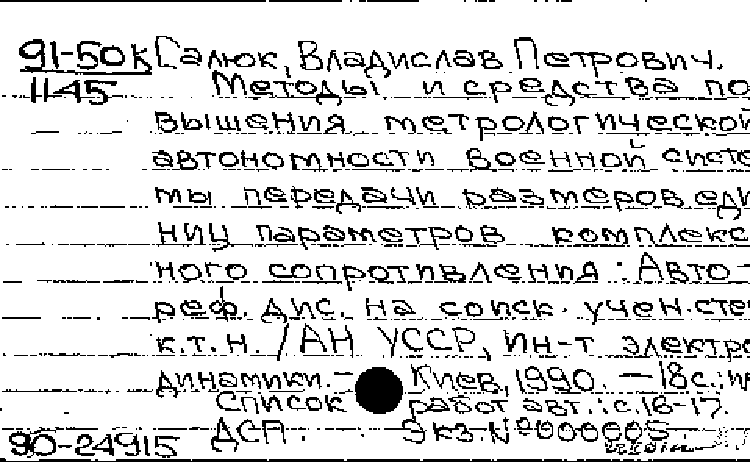 91-50к Галюк, Владислав Петрович.
1145 Методы и средства по
вышения метрологической
автономности военной систе
мы передачи размеров еди
ниц параметров комплекс
ного сопротивления: Авто-
реф. дис. на соиск. учен. сте
к.т.н. / АН УССР, Ин-т электро
динамики. – Киев, 1990. – 18 с.; 
Список работ авт.: с. 16-17.
90-24915 ДСП. Экз. № 000005